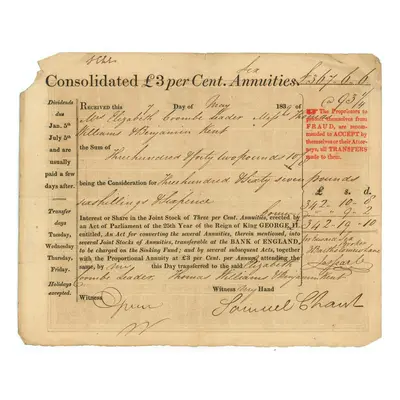 Consolidated £3 per Cent. Annuities. £367.6.6
@ 93 1/4
Dividends due Jan. 5th July 5th and are usually paid a few days after.
Transfer days Tuesday, Wednesday, Thursday, Friday. Holidays excepted.
RECEIVED this 7 Day of May 183
Mrs Elizabeth Coombe Leader
Williams & Benjamin Kent
the Sum of Three hundred & forty two pounds 10/8
being the Consideration for Three hundred & sixty seven pounds
six shillings & sixpence
Interest or Share in the Joint Stock of Three per Cent. Annuities, erected by
an Act of Parliament of the 25th Year of the Reign of King GEORGE II.
entitled, An Act for converting the several Annuities, therein mentioned, into
several Joint Stocks of Annuities, transferable at the BANK of ENGLAND,
to be charged on the Sinking Fund; and by several subsequent Acts, with
with the Proportional Annuity at £3 per Cent. per Annum attending the
same, by my this Day transferred to the said Elizabeth
Coombe Leader, Thomas Williams & Benjamin Kent
Witness my Hand
Witness
Samuel Chant
The Proprietors to protect themselves from FRAUD, are recommended to ACCEPT by themselves or their Attorneys, all TRANSFERS made to them.
£ s. d.
342 . 10 - 8
9 - 2
342 . 19 - 10